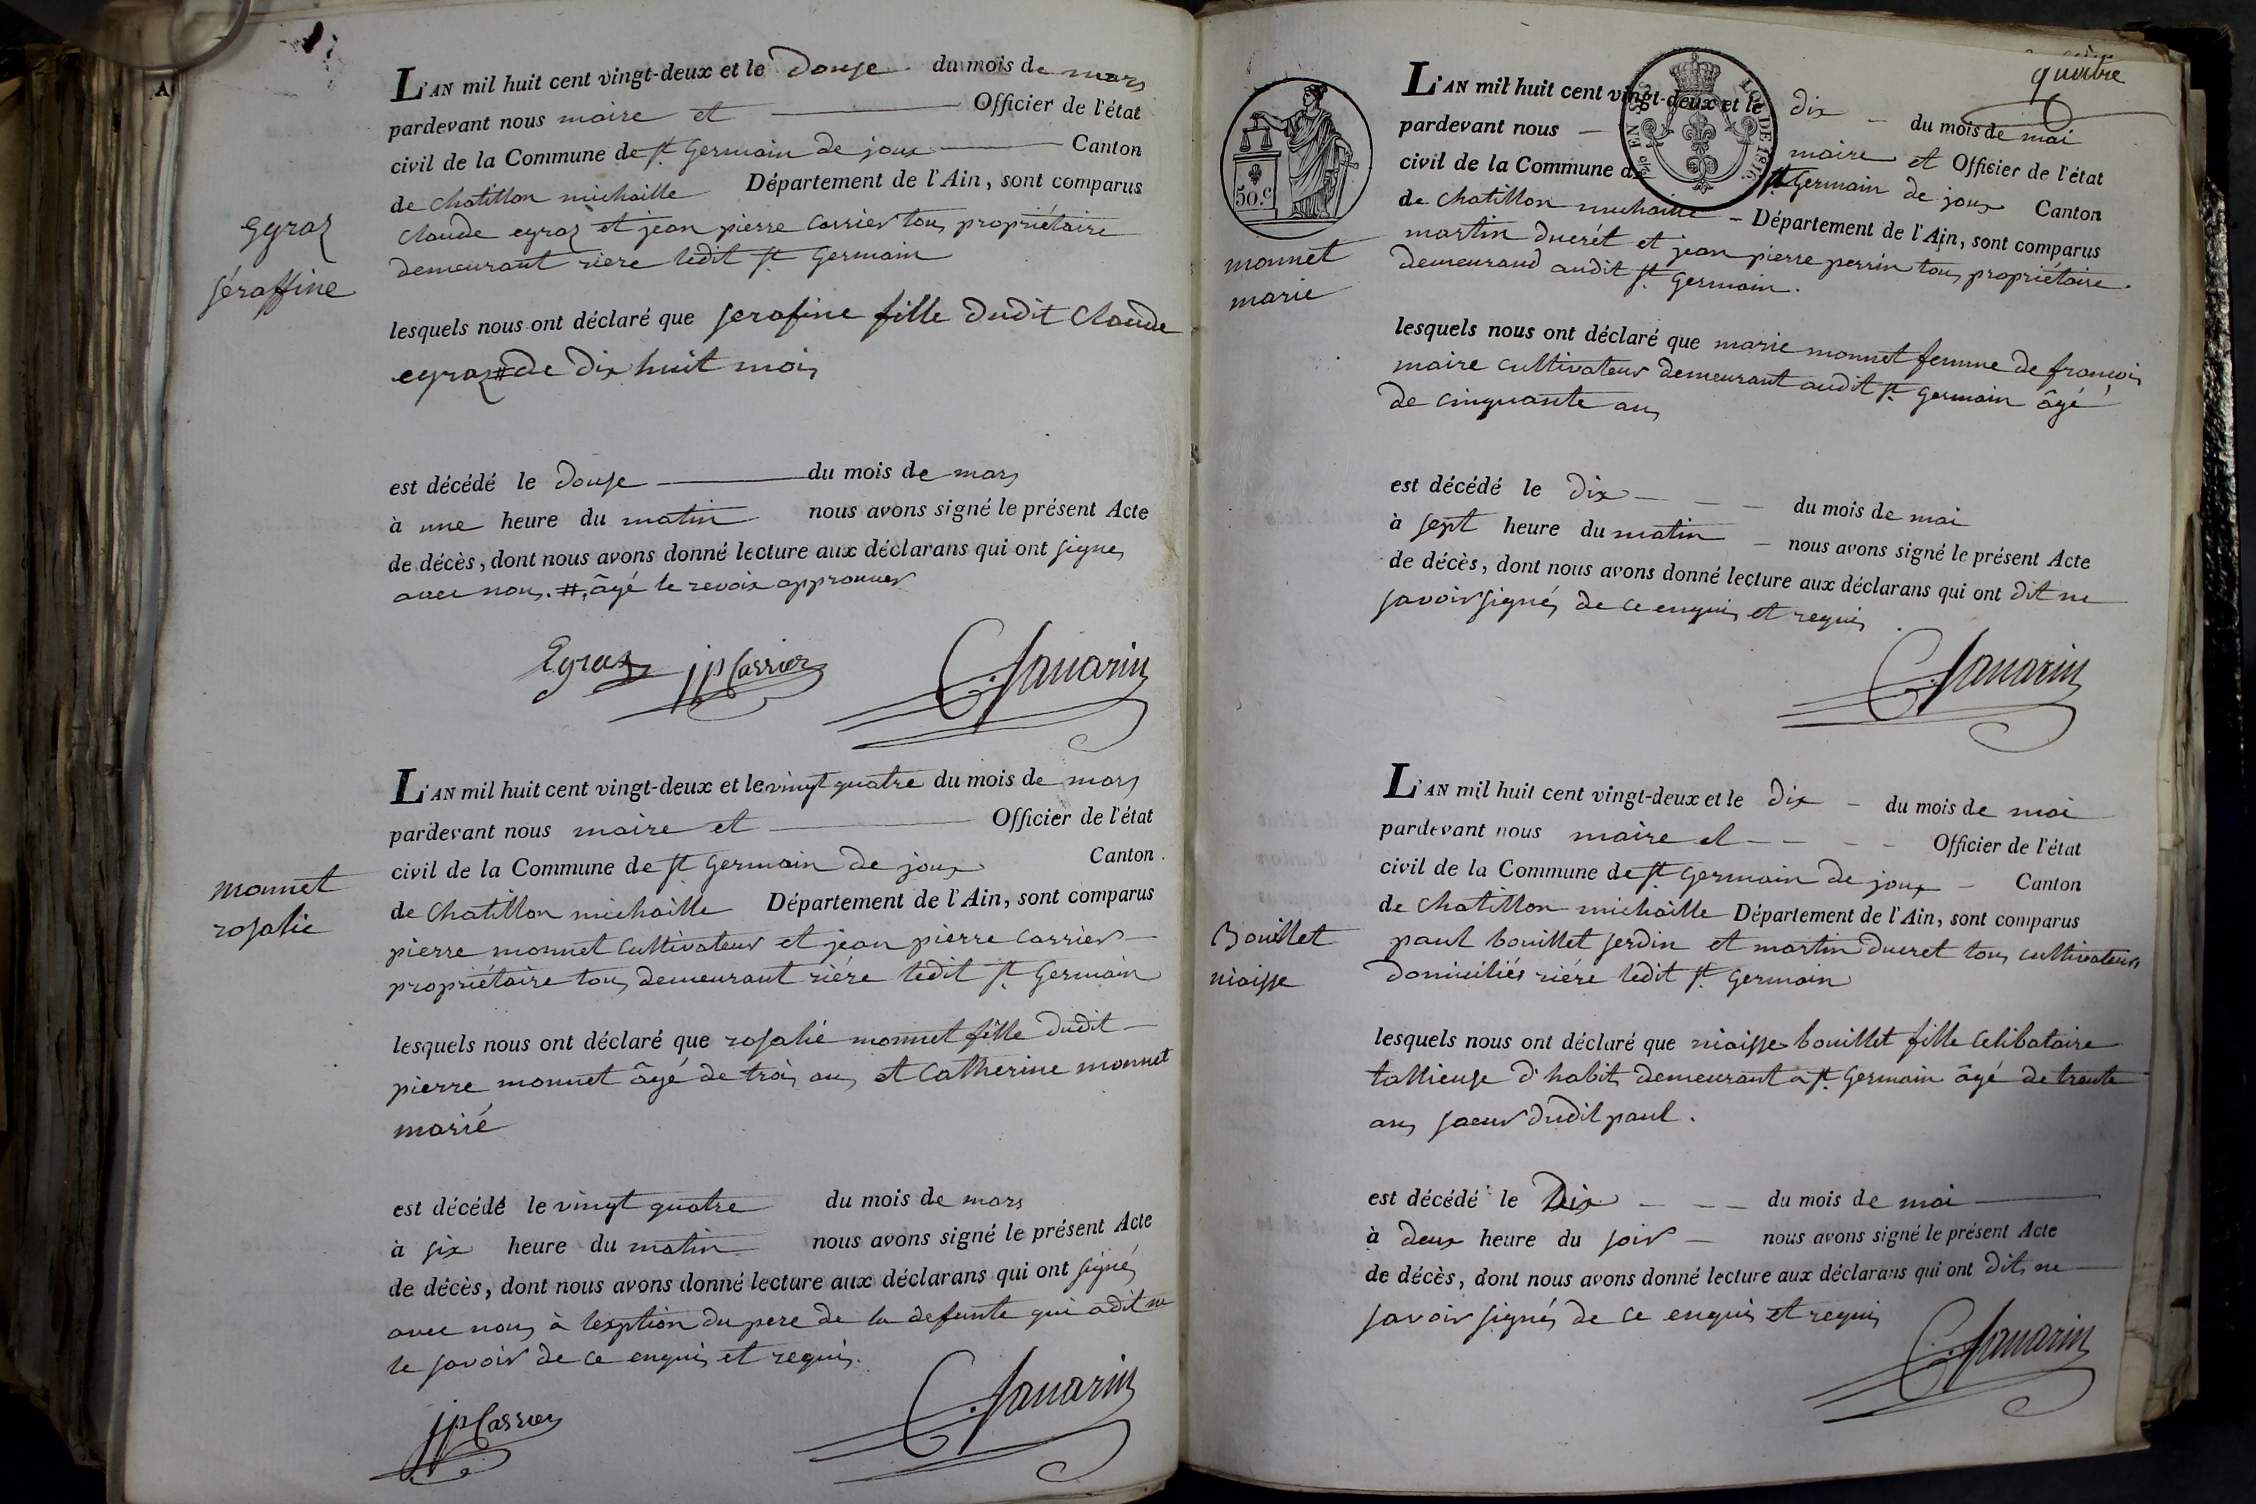 Egraz
séraffine
L'AN mil huit cent vingt-deux et le douse du mois de mars
pardevant nous maire et Officier de l'état
civil de la Commune de st Germain de joux Canton
de chatillon michaille Département de l'Ain, sont comparus
claude egraz et jean pierre carrier tous propriétaire
demeurant riere ledit st Germain
lesquels nous ont déclaré que serafine fille dudit Claude
egraz # de dix huit mois
est décédé le douse du mois de mars
à une heure du matin nous avons signé le présent Acte
de décès, dont nous avons donné lecture aux déclarans qui ont signes
avec nous. # âgé le revoix approuver
Egraz jp Carrier C. Savarin
monnet
rosalie
L'AN mil huit cent vingt-deux et le vingt quatre du mois de mars
pardevant nous maire et Officier de l'état
civil de la Commune de st Germain de joux Canton
de Chatillon michaille Département de l'Ain, sont comparus
pierre monnet cultivateur et jean pierre carrier
propriétaire tous demeurant riére ledit st Germain
lesquels nous ont déclaré que rosalie monnet fille dudit
pierre monnet âgé de trois ans et Catherine monnet
marié
est décédé le vingt quatre du mois de mars
à six heure du matin nous avons signé le présent Acte
de décès, dont nous avons donné lecture aux déclarans qui ont signé
avec nous à lexption du pere de la defunte qui a dit ne
le savoir de ce enquis et requis.
jp Carrier C. Savarin
quatre
50.c
EN SUS LOI DE 1816
monnet
marie
L'AN mil huit cent vingt-deux et le dix du mois de mai
pardevant nous maire et Officier de l'état
civil de la Commune de st Germain de joux Canton
de chatillon michaille Département de l'Ain, sont comparus
martin ducrét et jean pierre perrin tous propriétaire.
demeurand audit st Germain.
lesquels nous ont déclaré que marie monnet femme de francois
maire cultivateur demeurant audit st Germain âgé
de cinquante ans
est décédé le dix du mois de mai
à sept heure du matin nous avons signé le présent Acte
de décès, dont nous avons donné lecture aux déclarans qui ont dit ne
savoir signés de ce enquis et requis
C. Savarin
Bouillet
niaisse
L'AN mil huit cent vingt-deux et le dix du mois de mai
pardevant nous maire et Officier de l'état
civil de la Commune de st Germain de joux Canton
de chatillon michaille Département de l'Ain, sont comparus
paul bouillet jerdin et martin ducret tous cultivateurs
domiciliés riére ledit st Germain
lesquels nous ont déclaré que niaisse bouillet fille celibataire
tallieuse d'habit demeurant a st Germain âgé de trente
ans soeur dudit paul.
est décédé le Dix du mois de mai
à deux heure du soir nous avons signé le présent Acte
de décès, dont nous avons donné lecture aux déclarans qui ont dit ne
savoir signés de ce enquis et requis
C. Savarin